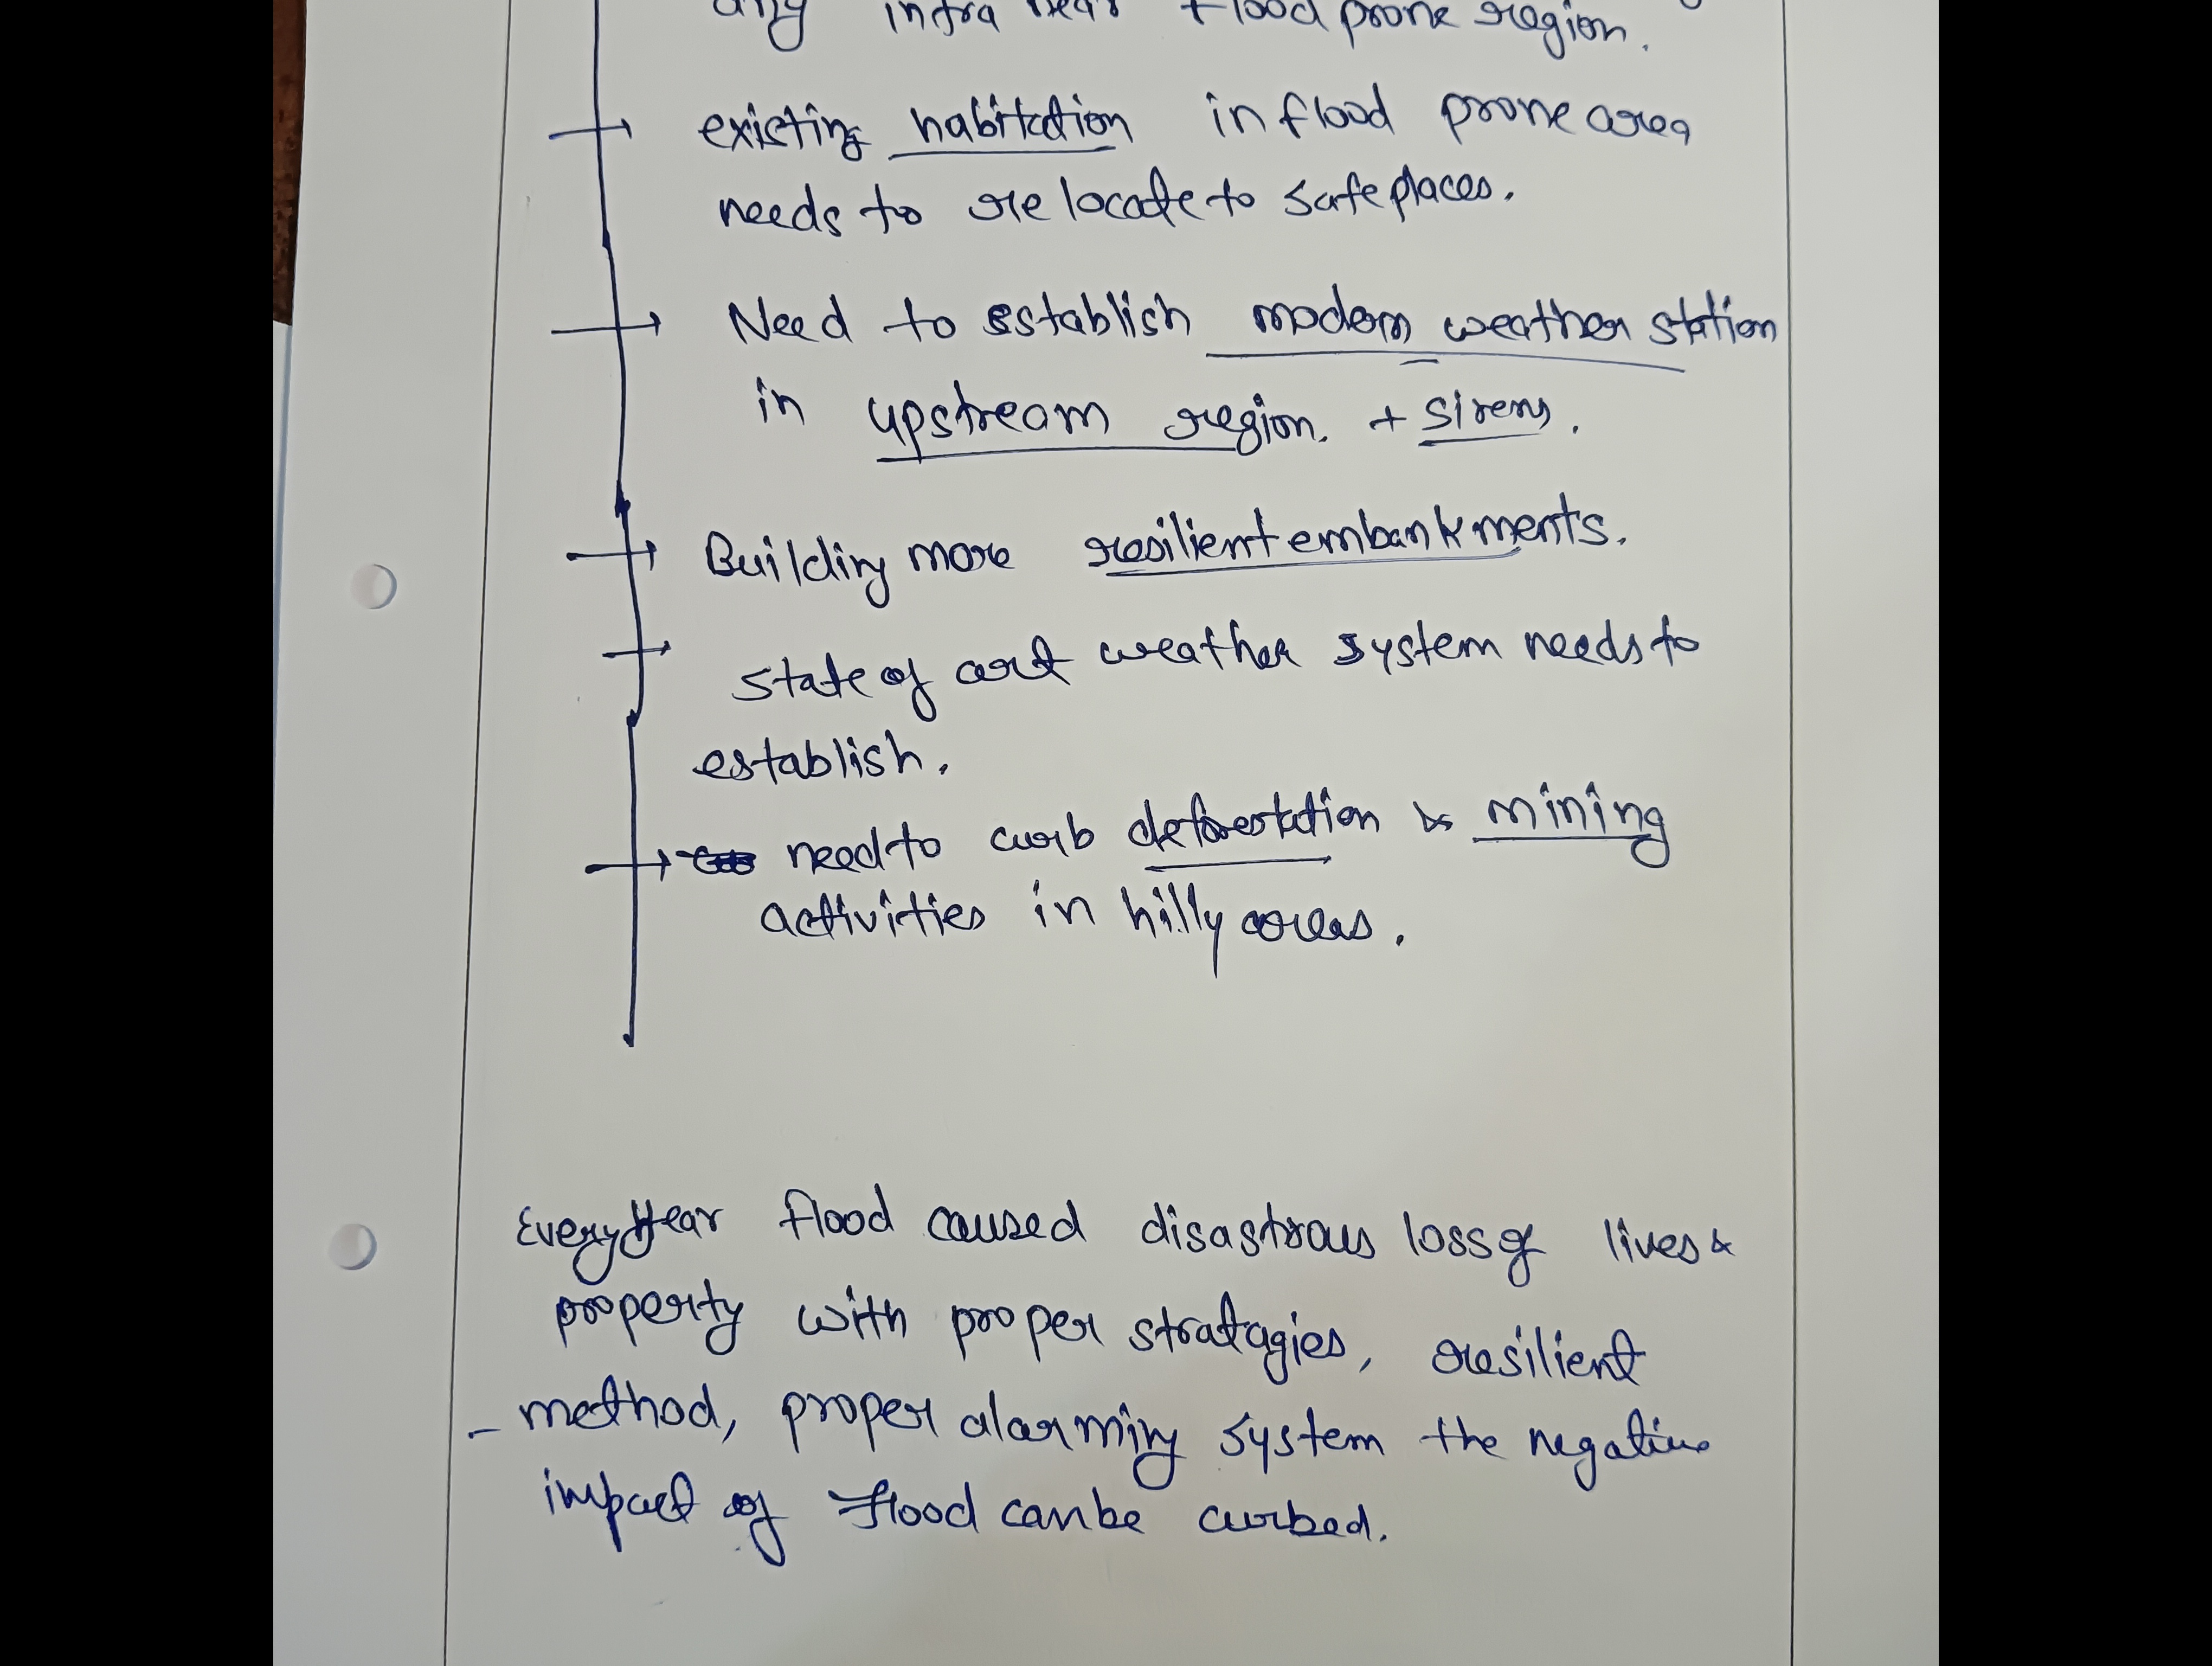 any infra near flood prone region.
existing habitation in flood prone area
needs to relocate to safe places.
Need to establish modern weather station
in upstream region. + sirens.
Building more resilient embankments.
State of art weather system needs to
establish.
need to curb deforestation & mining
activities in hilly areas.
Every year flood caused disastrous loss of lives &
property with proper stratagies, resilient
- method, proper alarming system the negative
impact of flood can be curbed.